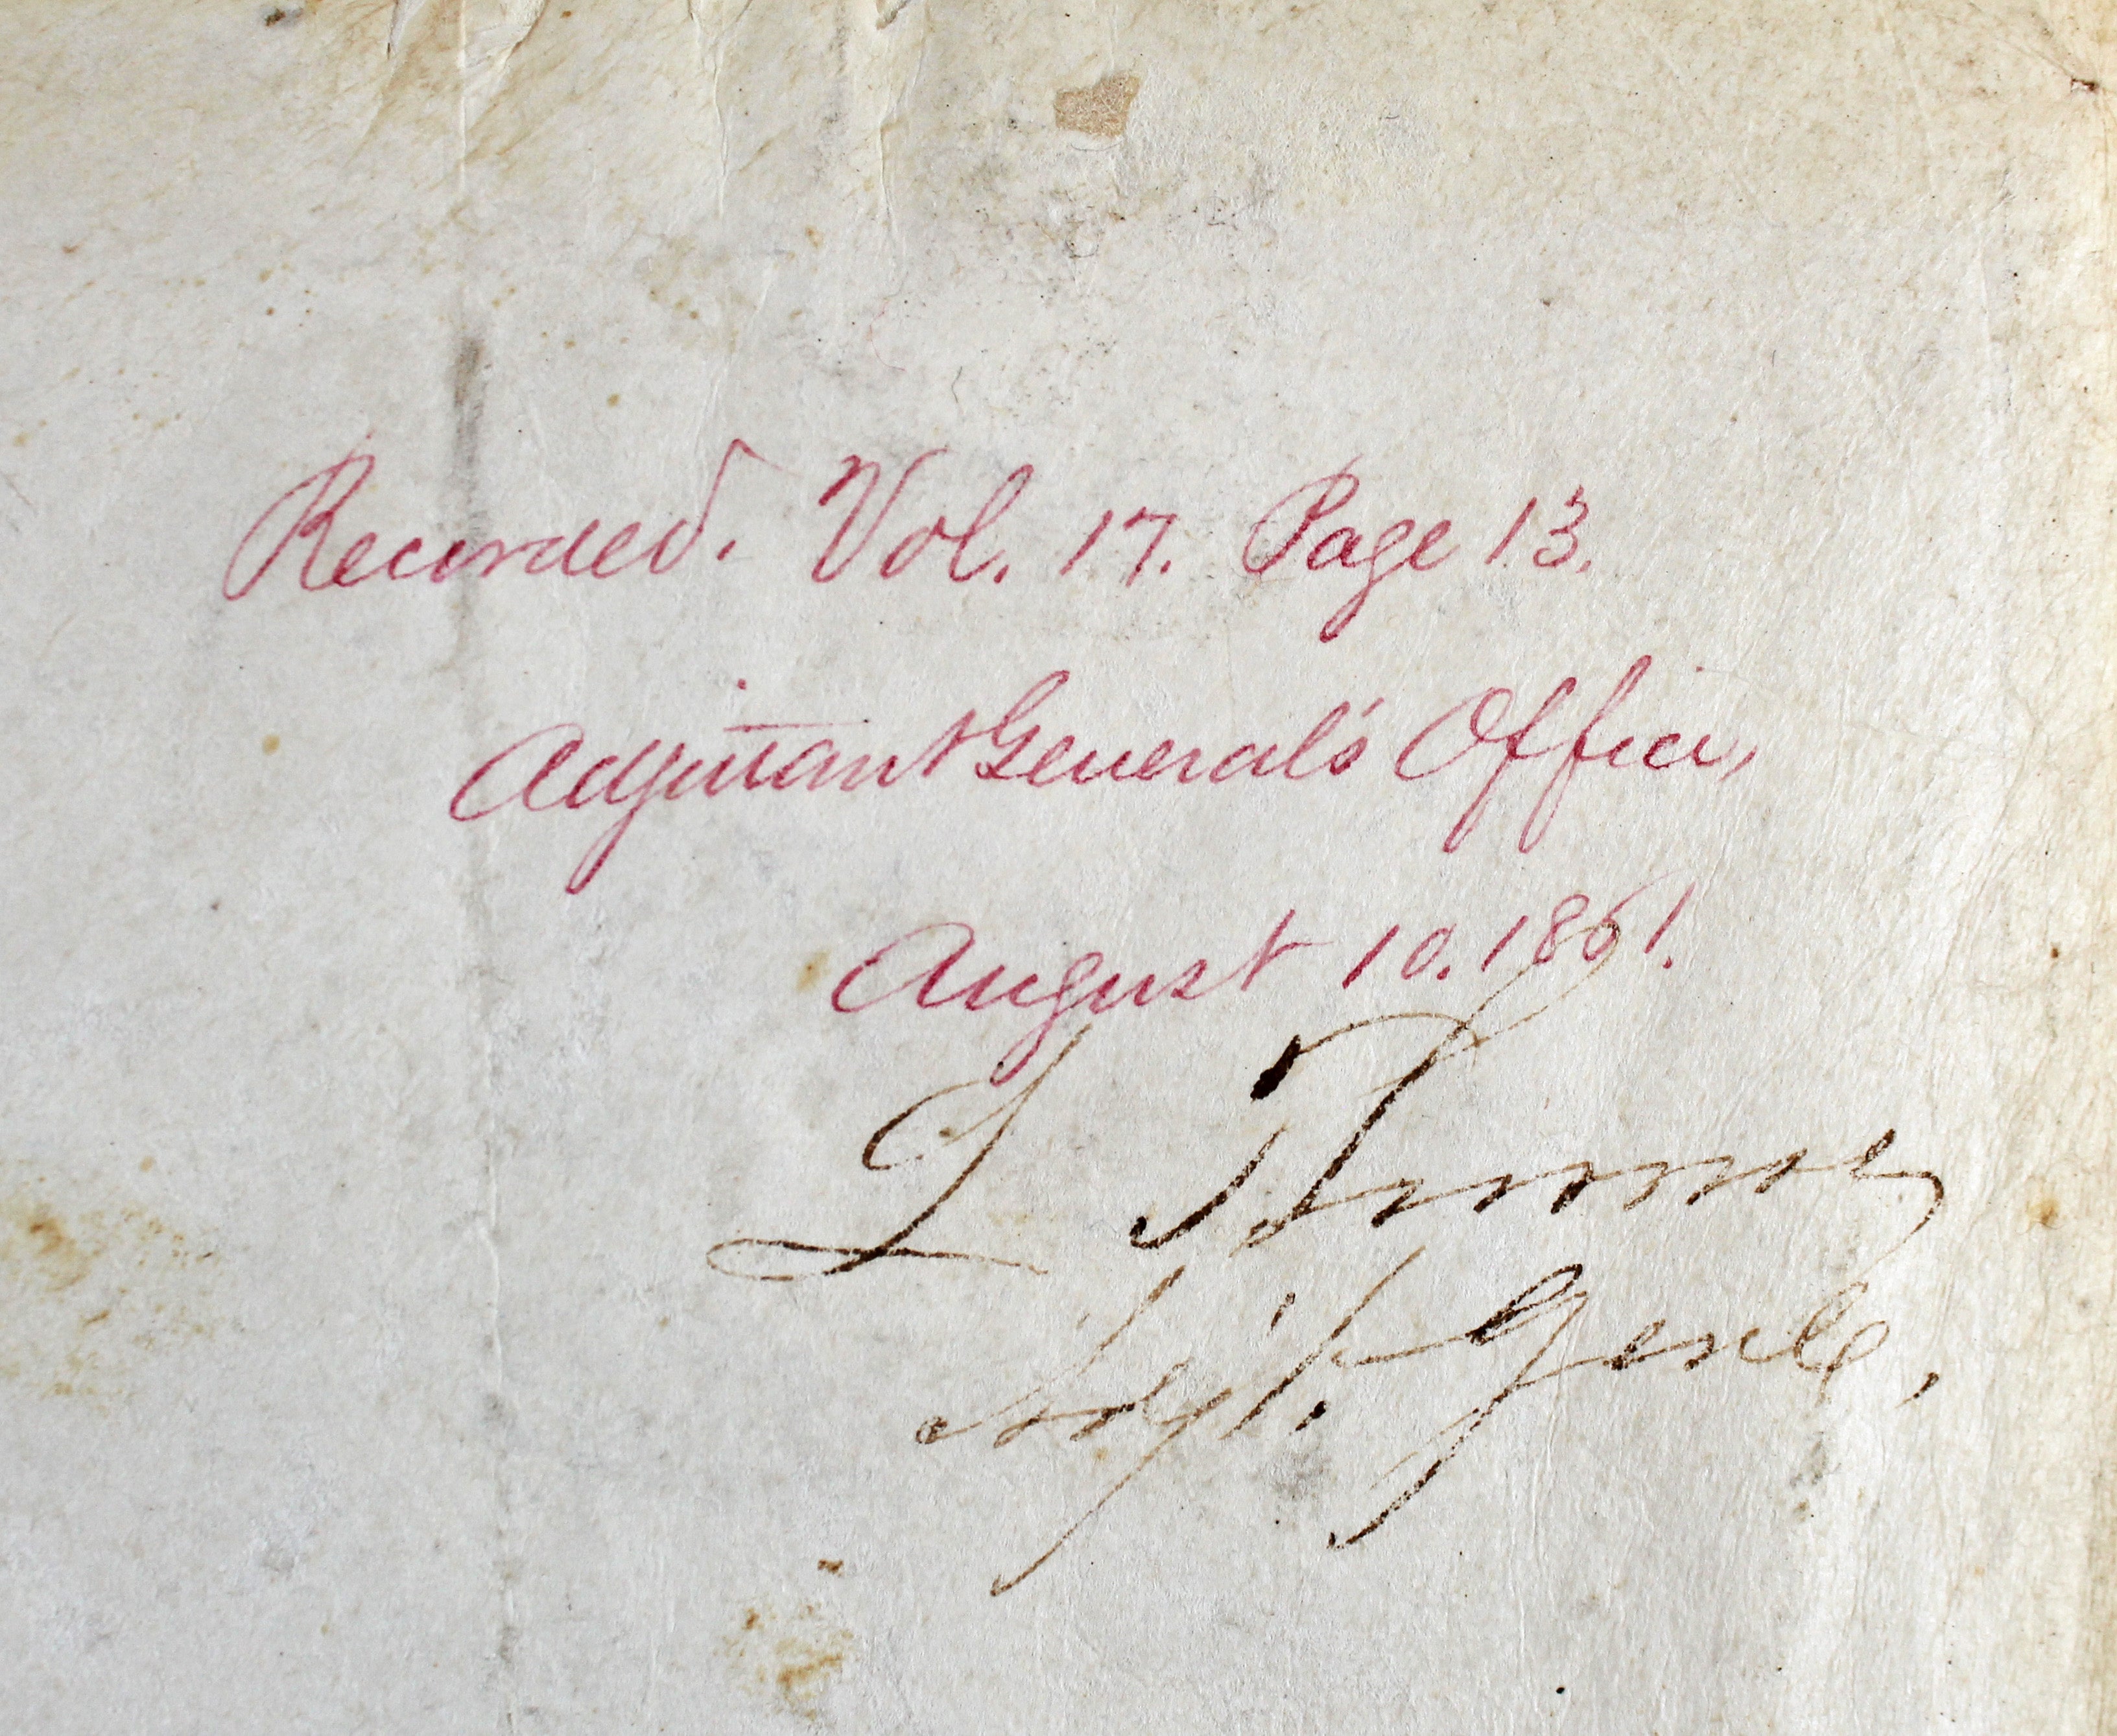 Recorded. Vol. 17. Page 13.
Adjutant General's Office,
August 10. 1861.
L Thomas
Adjt. Genl.